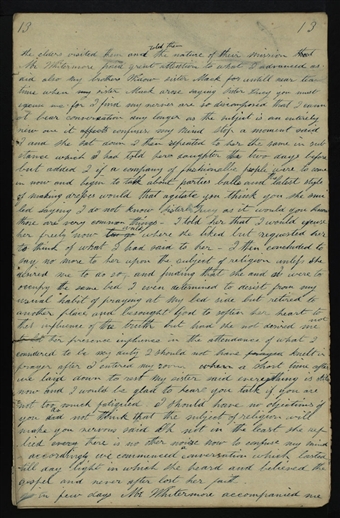 13 13
the elders visited them and told them the nature of their mission
Mr Whitermore paid great attention to what I advanced as
did also my brothers Widow sister Mack for untill near tea
time when my sister Mack arose saying Sister Lucy you must
excuse me for I find my nerves are so discomposed that I cannot
bear conversation any longer as the subject is an entirely
new one it affects confuses my mind Stop a moment said
I and she sat down I then repeated to her the same in sub
stance which I had told her daughter the two days before
but added if a company of fashionable people were to come
in now and begin to talk about parties balls and the latest style
of making dresses would that agitate you think you she smi
led saying I do not know Sister Lucy as it would you know
those are very common things — I told her that I would excuse
her freely now to go where she liked but requested her
to think of what I had said to her — I then concluded to
say no more to her upon the subject of religion unless she
desired me to do so, and finding that she and I were to
occupy the same bed I even determined to desist from my
usual habit of praying at my bed side but retired to
another place and besought God to soften her heart to
the influence of the truth and had she not desired me
her presence influence in the attendance of what I
considered to be my duty I should not have knelt in
prayer after I entered my room. when a short time after
we laid down to rest my sister said everything is still
now and I would be glad to hear you talk if you are
not too much fatigued I should have no objections
you do not think that the subject of religion will
make you nervous said Oh not in the least she rep
lied every there is no other noise now to confuse my mind
accordingly we commenced conversation which lasted
till day light in what she heard and believed the
gospel and never after lost her faith.
In a few days Mr Whitermore accompanied me